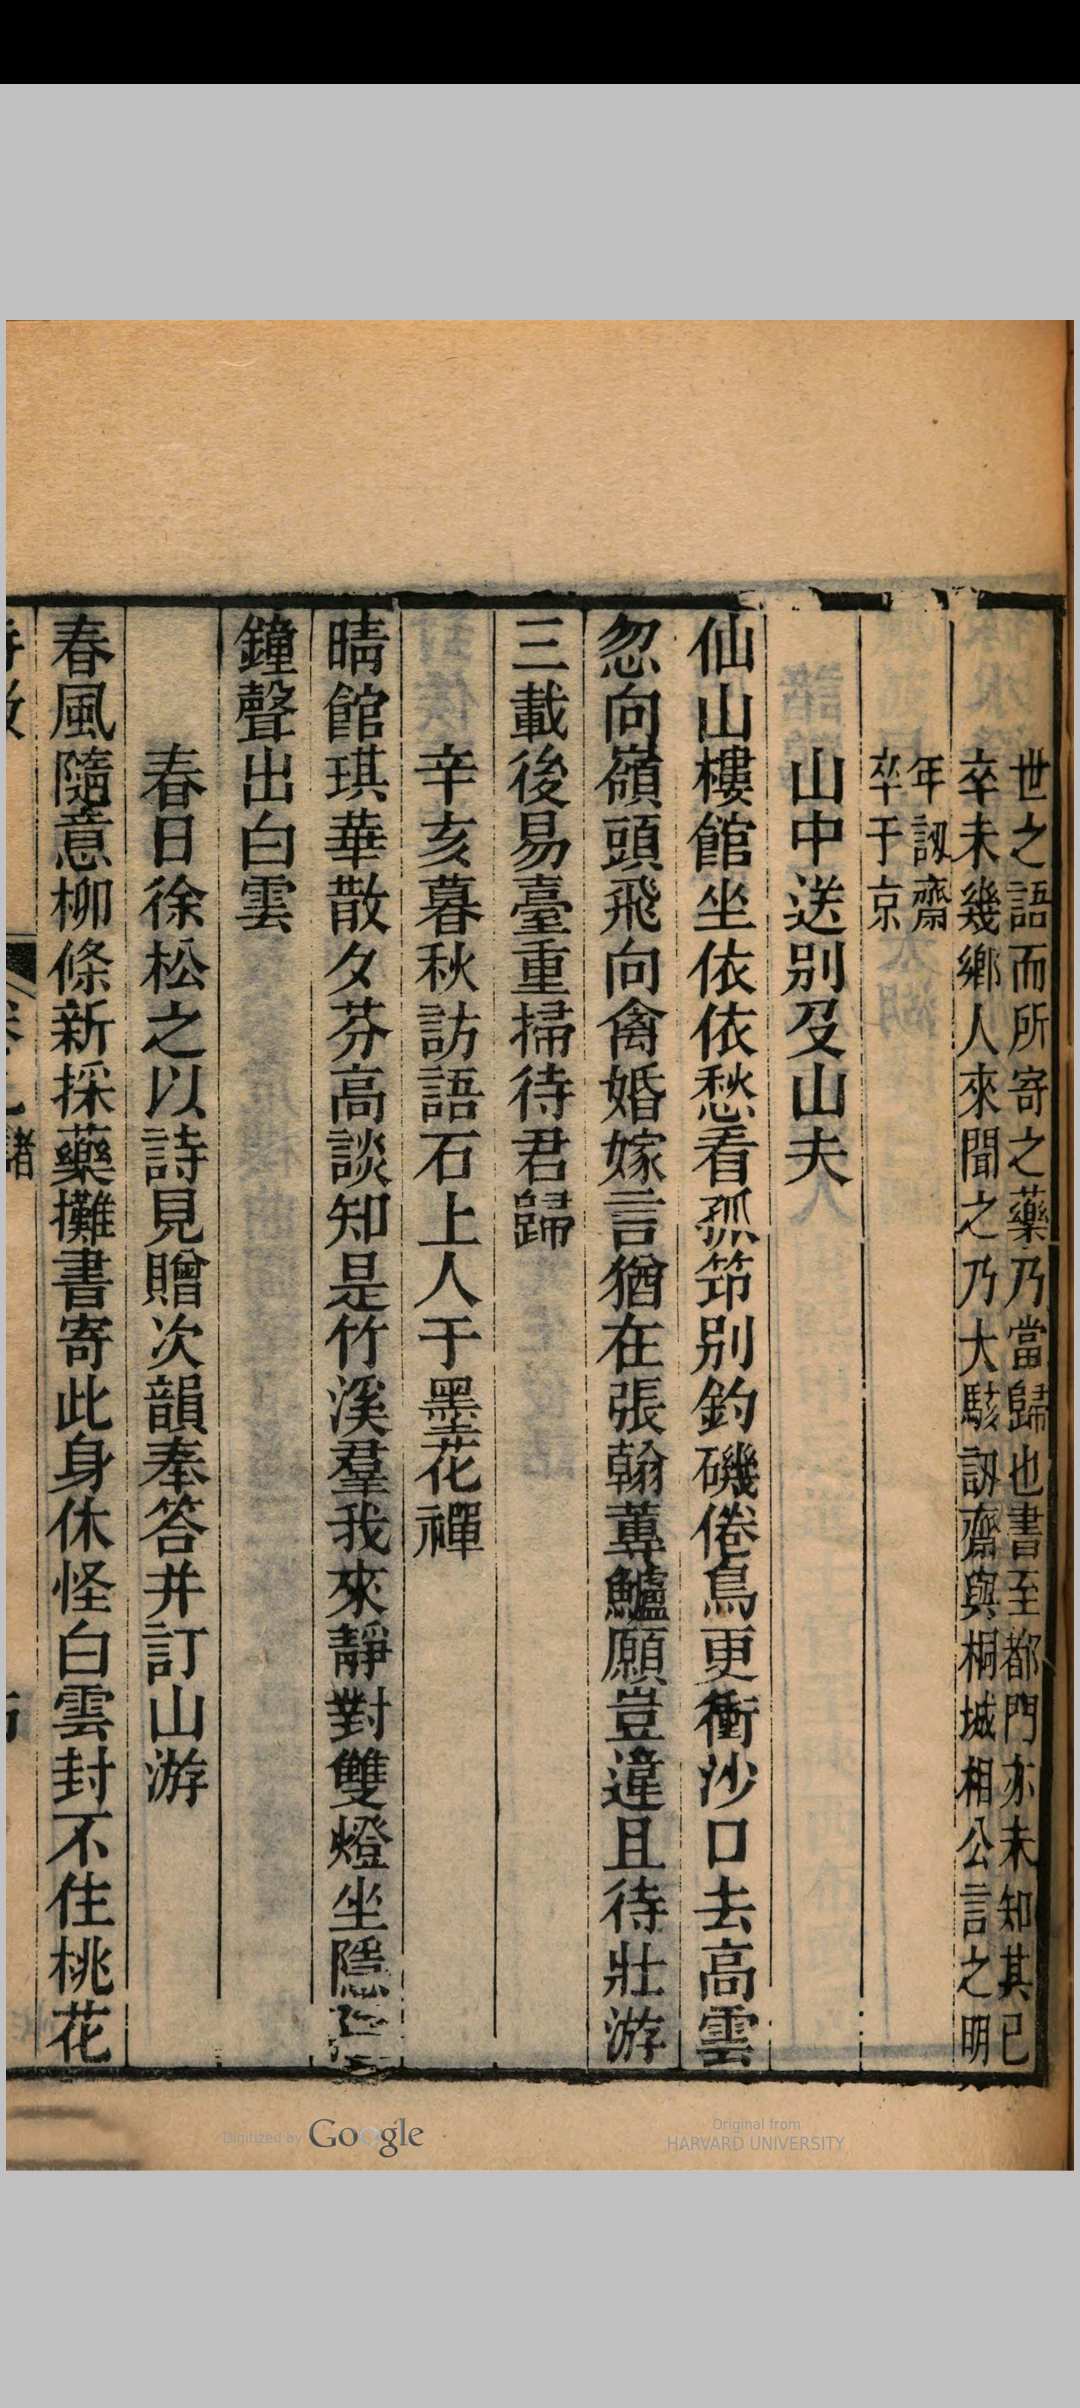 世之語而所寄之藥乃當歸也書至都門亦未知其已
卒未幾鄉人來聞之乃大駭訒齋與桐城相公言之明
年訒齋
卒于京
山中送別及山夫
仙山樓館坐依依愁看孤笻別釣磯倦鳥更衝沙口去高雲
忽向嶺頭飛向禽婚嫁言猶在張翰蓴鱸願豈違且待壯游
三載後易臺重掃待君歸
辛亥暮秋訪語石上人于墨花禪
晴館琪華散夕芬高談知是竹溪羣我來靜對雙燈坐隱
鐘聲出白雲
春日徐松之以詩見贈次韻奉答并訂山游
春風隨意柳條新採藥攤書寄此身休怪白雲封不住桃花
Digitized by Google
Original from
HARVARD UNIVERSITY